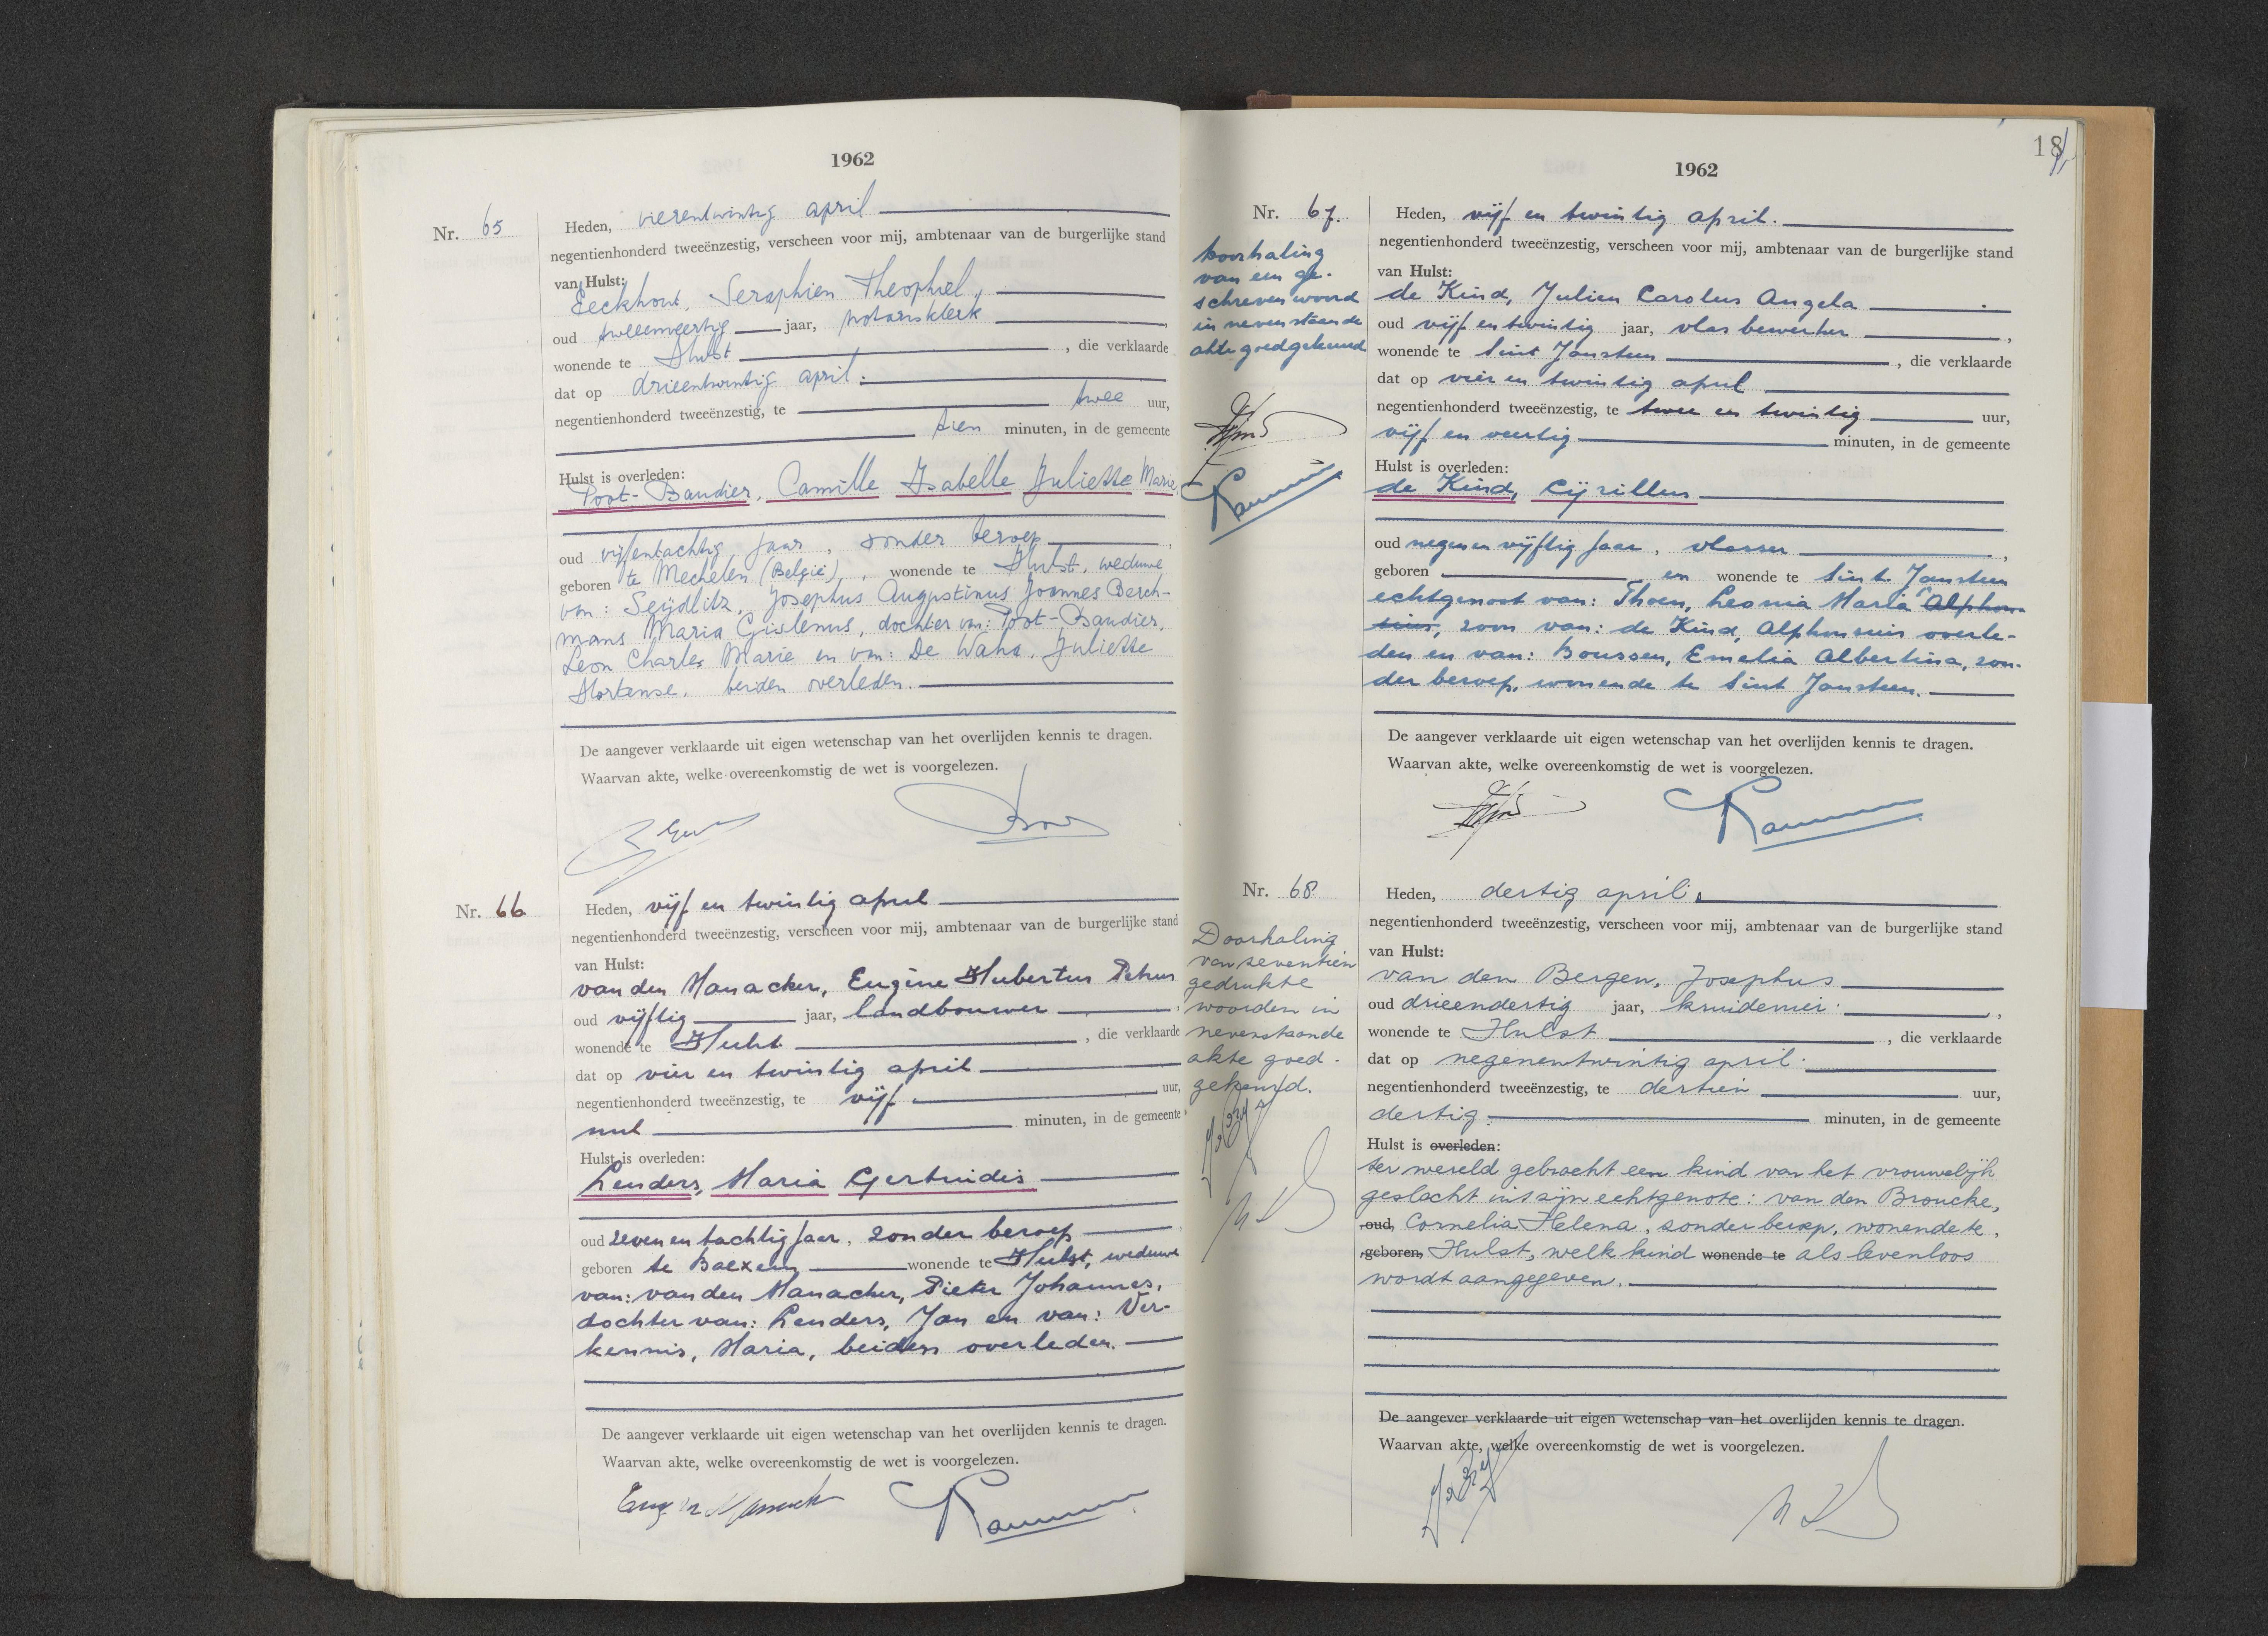 1962
Nr. 65
Heden, vierentwintig april
negentienhonderd tweeënzestig, verscheen voor mij, ambtenaar van de burgerlijke stand
van Hulst:
Eeckhout, Seraphien Theophiel,
oud tweeenveertig jaar, notarisklerk
wonende te Hulst , die verklaarde
dat op drieentwintig april.
negentienhonderd tweeënzestig, te twee uur,
tien minuten, in de gemeente
Hulst is overleden:
Poot-Baudier, Camille Isabelle Juliette Marie,
oud vijfentachtig jaar, zonder beroep
geboren te Mechelen (België), wonende te Hulst, weduwe
van: Seijdlitz, Josephus Augustinus Joannes Berch-
mans Maria Gislenus, dochter van: Poot-Baudier,
Leon Charles Marie en van: De Waha, Juliette
Hortense, beiden overleden.
De aangever verklaarde uit eigen wetenschap van het overlijden kennis te dragen.
Waarvan akte, welke overeenkomstig de wet is voorgelezen.
Nr. 66
Heden, vijf en twintig april
negentienhonderd tweeënzestig, verscheen voor mij, ambtenaar van de burgerlijke stand
van Hulst:
van den Manacker, Eugène Hubertus Petrus
oud vijftig jaar, landbouwer
wonende te Hulst , die verklaarde
dat op vier en twintig april
negentienhonderd tweeënzestig, te vijf uur,
nul minuten, in de gemeente
Hulst is overleden:
Lenders, Maria Gertrudis
oud zeven en tachtig jaar, zonder beroep
geboren te Baexem wonende te Hulst, weduwe
van: van den Manacker, Pieter Johannes,
dochter van: Lenders, Jan en van: Ver-
kennis, Maria, beiden overleden.
De aangever verklaarde uit eigen wetenschap van het overlijden kennis te dragen.
Waarvan akte, welke overeenkomstig de wet is voorgelezen.
18
1962
Nr. 67.
Doorhaling
van een ge-
schreven woord
in nevenstaande
akte goedgekeurd
Heden, vijf en twintig april.
negentienhonderd tweeënzestig, verscheen voor mij, ambtenaar van de burgerlijke stand
van Hulst:
de Kind, Julien Carolus Angela
oud vijf en twintig jaar, vlasbewerker
wonende te Sint Jansteen , die verklaarde
dat op vier en twintig april
negentienhonderd tweeënzestig, te twee en twintig uur,
vijf en veertig minuten, in de gemeente
Hulst is overleden:
de Kind, Cyrillus
oud negen en vijftig jaar, vlasser
geboren en wonende te Sint Jansteen
echtgenoot van: Thoen, Leonia Maria Alphon-
sius, zoon van: de Kind, Alphonsius overle-
den en van: Boussen, Emelia Albertina, zon-
der beroep, wonende te Sint Jansteen.
De aangever verklaarde uit eigen wetenschap van het overlijden kennis te dragen.
Waarvan akte, welke overeenkomstig de wet is voorgelezen.
Nr. 68
Doorhaling
van seventien
gedrukte
woorden in
nevenstaande
akte goed-
gekeurd.
Heden, dertig april.
negentienhonderd tweeënzestig, verscheen voor mij, ambtenaar van de burgerlijke stand
van Hulst:
van den Bergen, Josephus
oud drieendertig jaar, kruidenier
wonende te Hulst , die verklaarde
dat op negenentwintig april.
negentienhonderd tweeënzestig, te dertien uur,
dertig minuten, in de gemeente
Hulst is overleden:
ter wereld gebracht een kind van het vrouwelijk
geslacht uit zijn echtgenote: van den Broucke,
oud, Cornelia Helena, zonder beroep, wonende te,
geboren, Hulst, welk kind wonende te als levenloos
wordt aangegeven.
De aangever verklaarde uit eigen wetenschap van het overlijden kennis te dragen.
Waarvan akte, welke overeenkomstig de wet is voorgelezen.